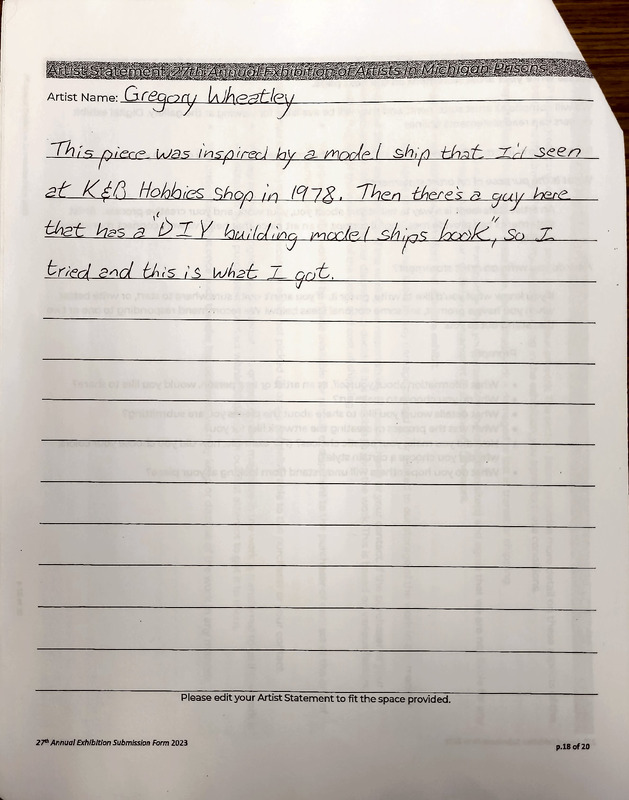 Artist Statement, 27th Annual Exhibition of Artists in Michigan Prisons
Artist Name: Gregory Wheatley
This piece was inspired by a model ship that I'd seen
at K&B Hobbies Shop in 1978. Then there's a guy here
that has a "DIY building model ships book", so I
tried and this is what I got.
Please edit your Artist Statement to fit the space provided.
27th Annual Exhibition Submission Form 2023
p.18 of 20